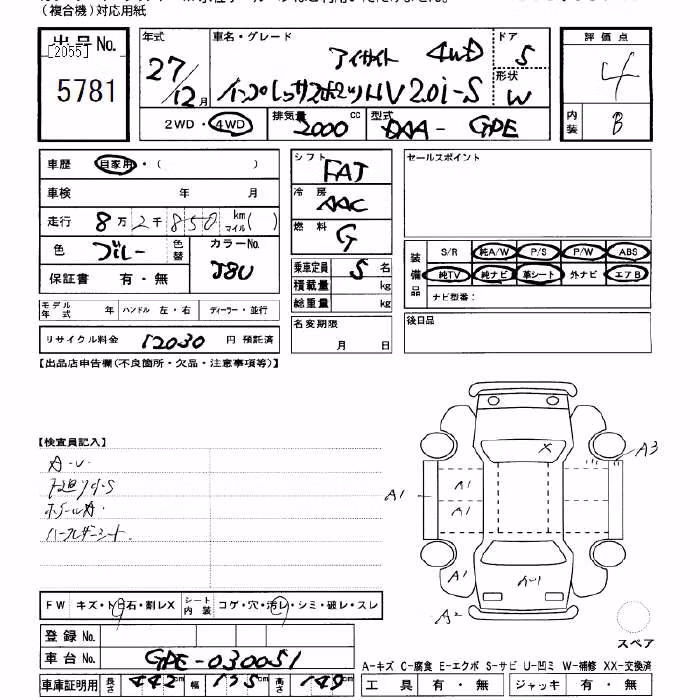 （複合機）対応用紙
出品No.
[2055]
5781
年式
27/12月
車名・グレード
アイサイト 4WD
インプレッサスポーツHV 2.0i-S
ドア
5
形状
W
2WD・4WD
排気量
2000 cc
型式
DAA- GPE
評価点
4
内装
B
車歴 自家用・（ ）
車検 年 月
走行 8万2千850 km マイル（ ）
色 ブルー 色替
カラーNo.
J8U
保証書 有・無
モデル年式 年 ハンドル 左・右 ディーラー・並行
リサイクル料金 12030 円 預託済
シフト
FAT
冷房
AAC
燃料
G
乗車定員 5名
積載量 kg
総重量 kg
名変期限
月 日
セールスポイント
装備品
S/R 純A/W P/S P/W ABS
純TV 純ナビ 革シート 外ナビ エアB
ナビ型番：
後日品
【出品店申告欄(不良箇所・欠品・注意事項等)】
【検査員記入】
A-U
ホイールA
ハーフレザーシート
X
A3
A1
A1
A1
A1
A2
スペア
FW キズ・トビ石・割レX シート内装 コゲ・穴・汚レ・シミ・破レ・スレ
登録No.
車台No. GPE-030051
車庫証明用 長さ 442cm 幅 175cm 高さ 149cm
A-キズ C-腐食 E-エクボ S-サビ U-凹ミ W-補修 XX-交換済
工具 有・無 ジャッキ 有・無